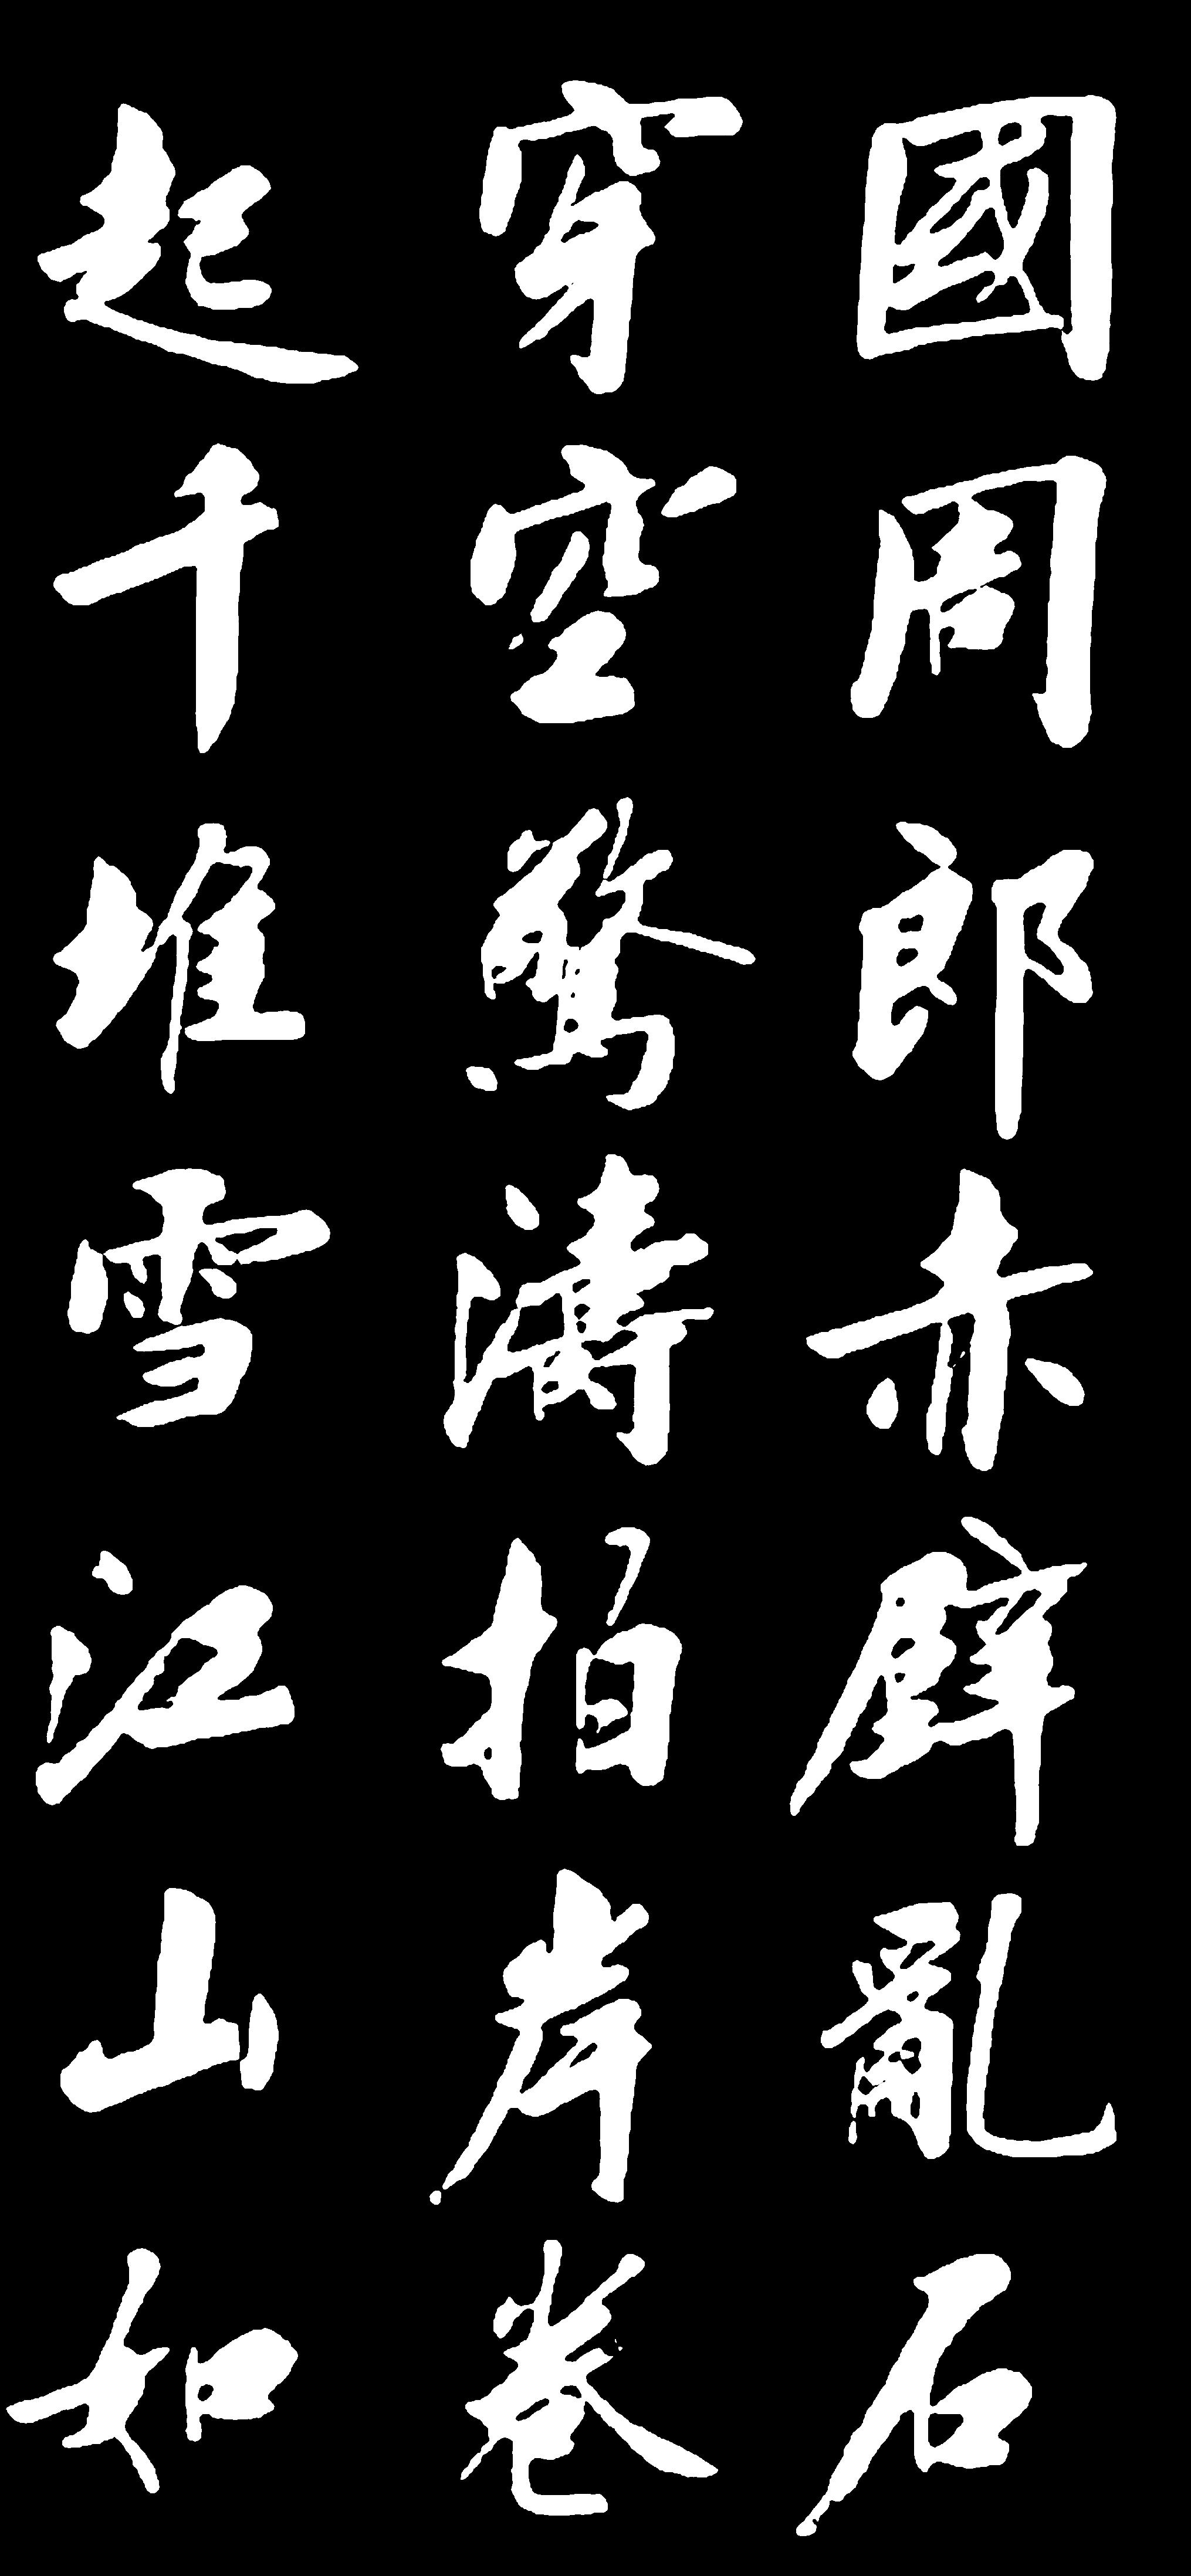 國周郎赤壁亂石
穿空驚濤拍岸卷
起千堆雪江山如